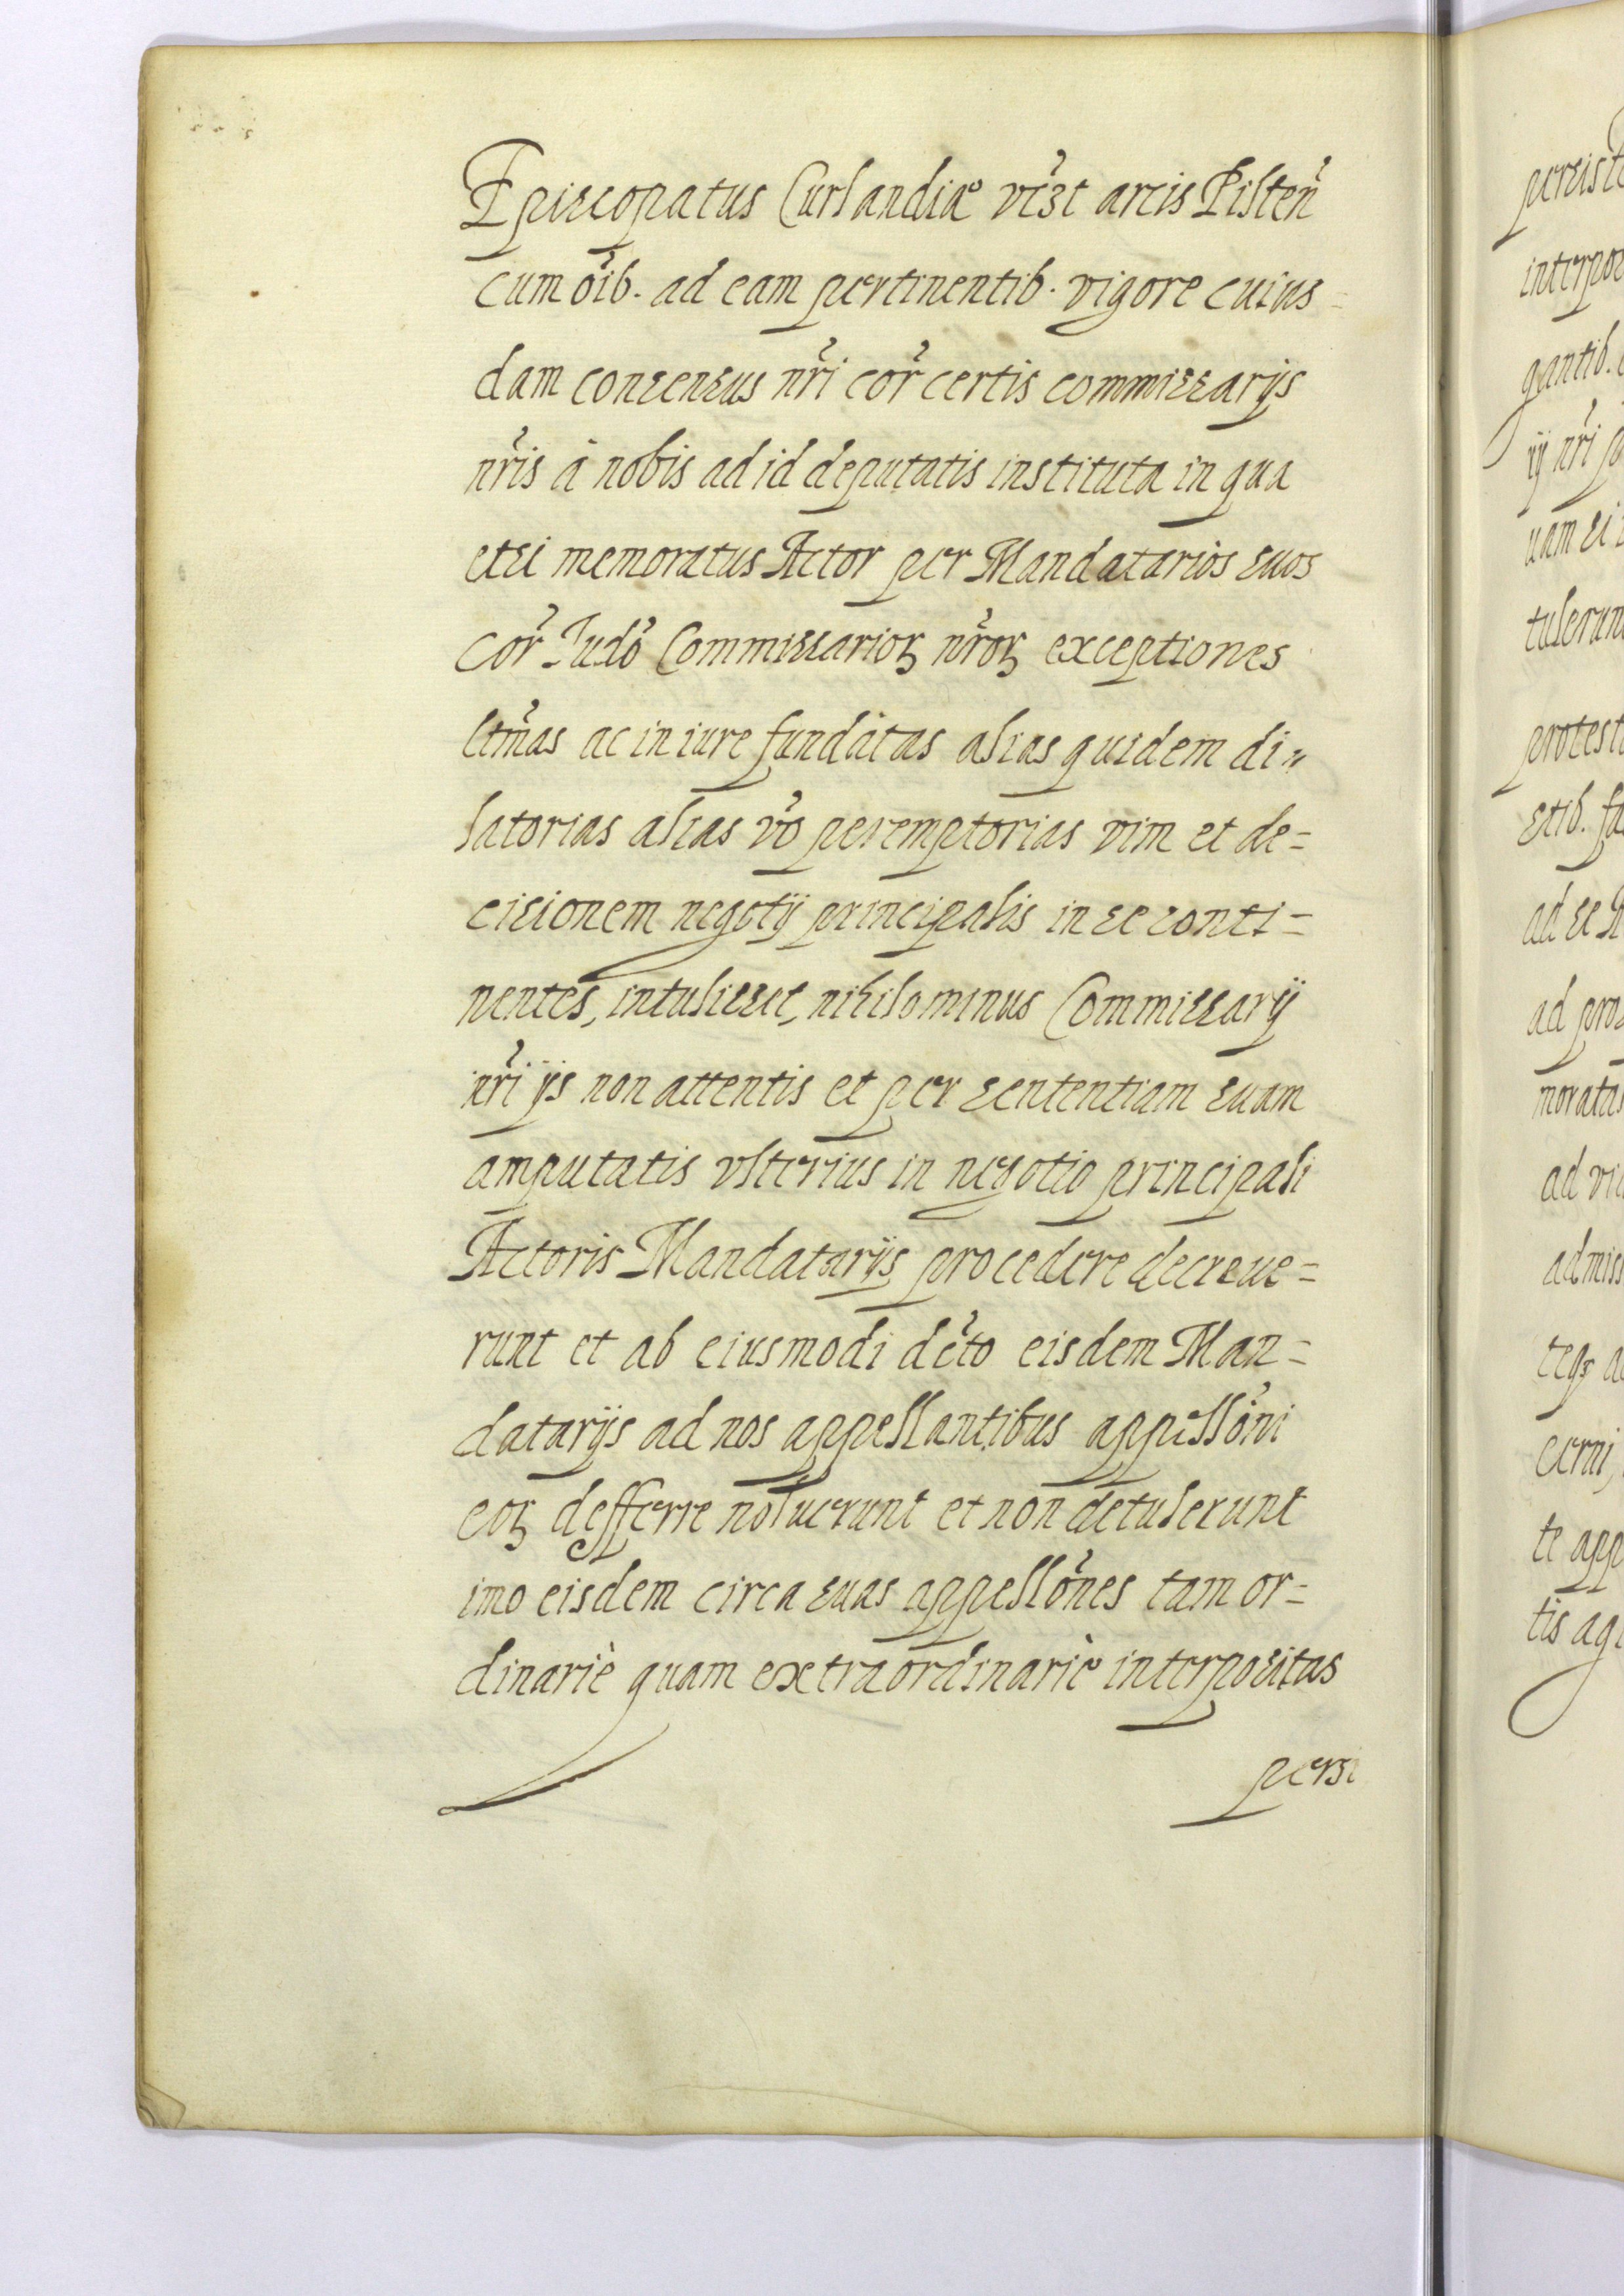 Episcopatus Curlandiæ vīzt arcis Pilteñ
cum oīb. ad eam pertinentib. vigore cuius=
dam consensus nr̃i cor̃ certis commissarijs
nr̃is â nobis ad id deputatis instituta in qua
etsi memoratus Actor per Mandatarios suos
cor̃ Judō Commissarioꝝ nr̃oꝝ exceptiones
ltm̃as ac in iure fundatas alias quidem di=
latorias alias vō peremptorias vim et de=
cisionem negotij principalis in se conti=
nentes, intulisset, nihilominus Commissarij
nr̃i ijs non attentis et per sententiam suam
amputatis vlterius in negotio principali
Actoris Mandatarijs procedere decreue=
runt et ab eiusmodi dēto eisdem Man=
datarijs ad nos appellantibus appellōni
eoꝝ defferre noluerunt et non detulerunt
imo eisdem circa suas appellōnes tam or=
dinariè quam extraordinariè interpositas
persi
persiste
interpos
gantib.
ij nr̃i p
uam si
tulerun
protest
stib. fa
ad se
ad pro
moratus
ad vi
admiss
teqꝫ a
cerni,
te app
tis ag